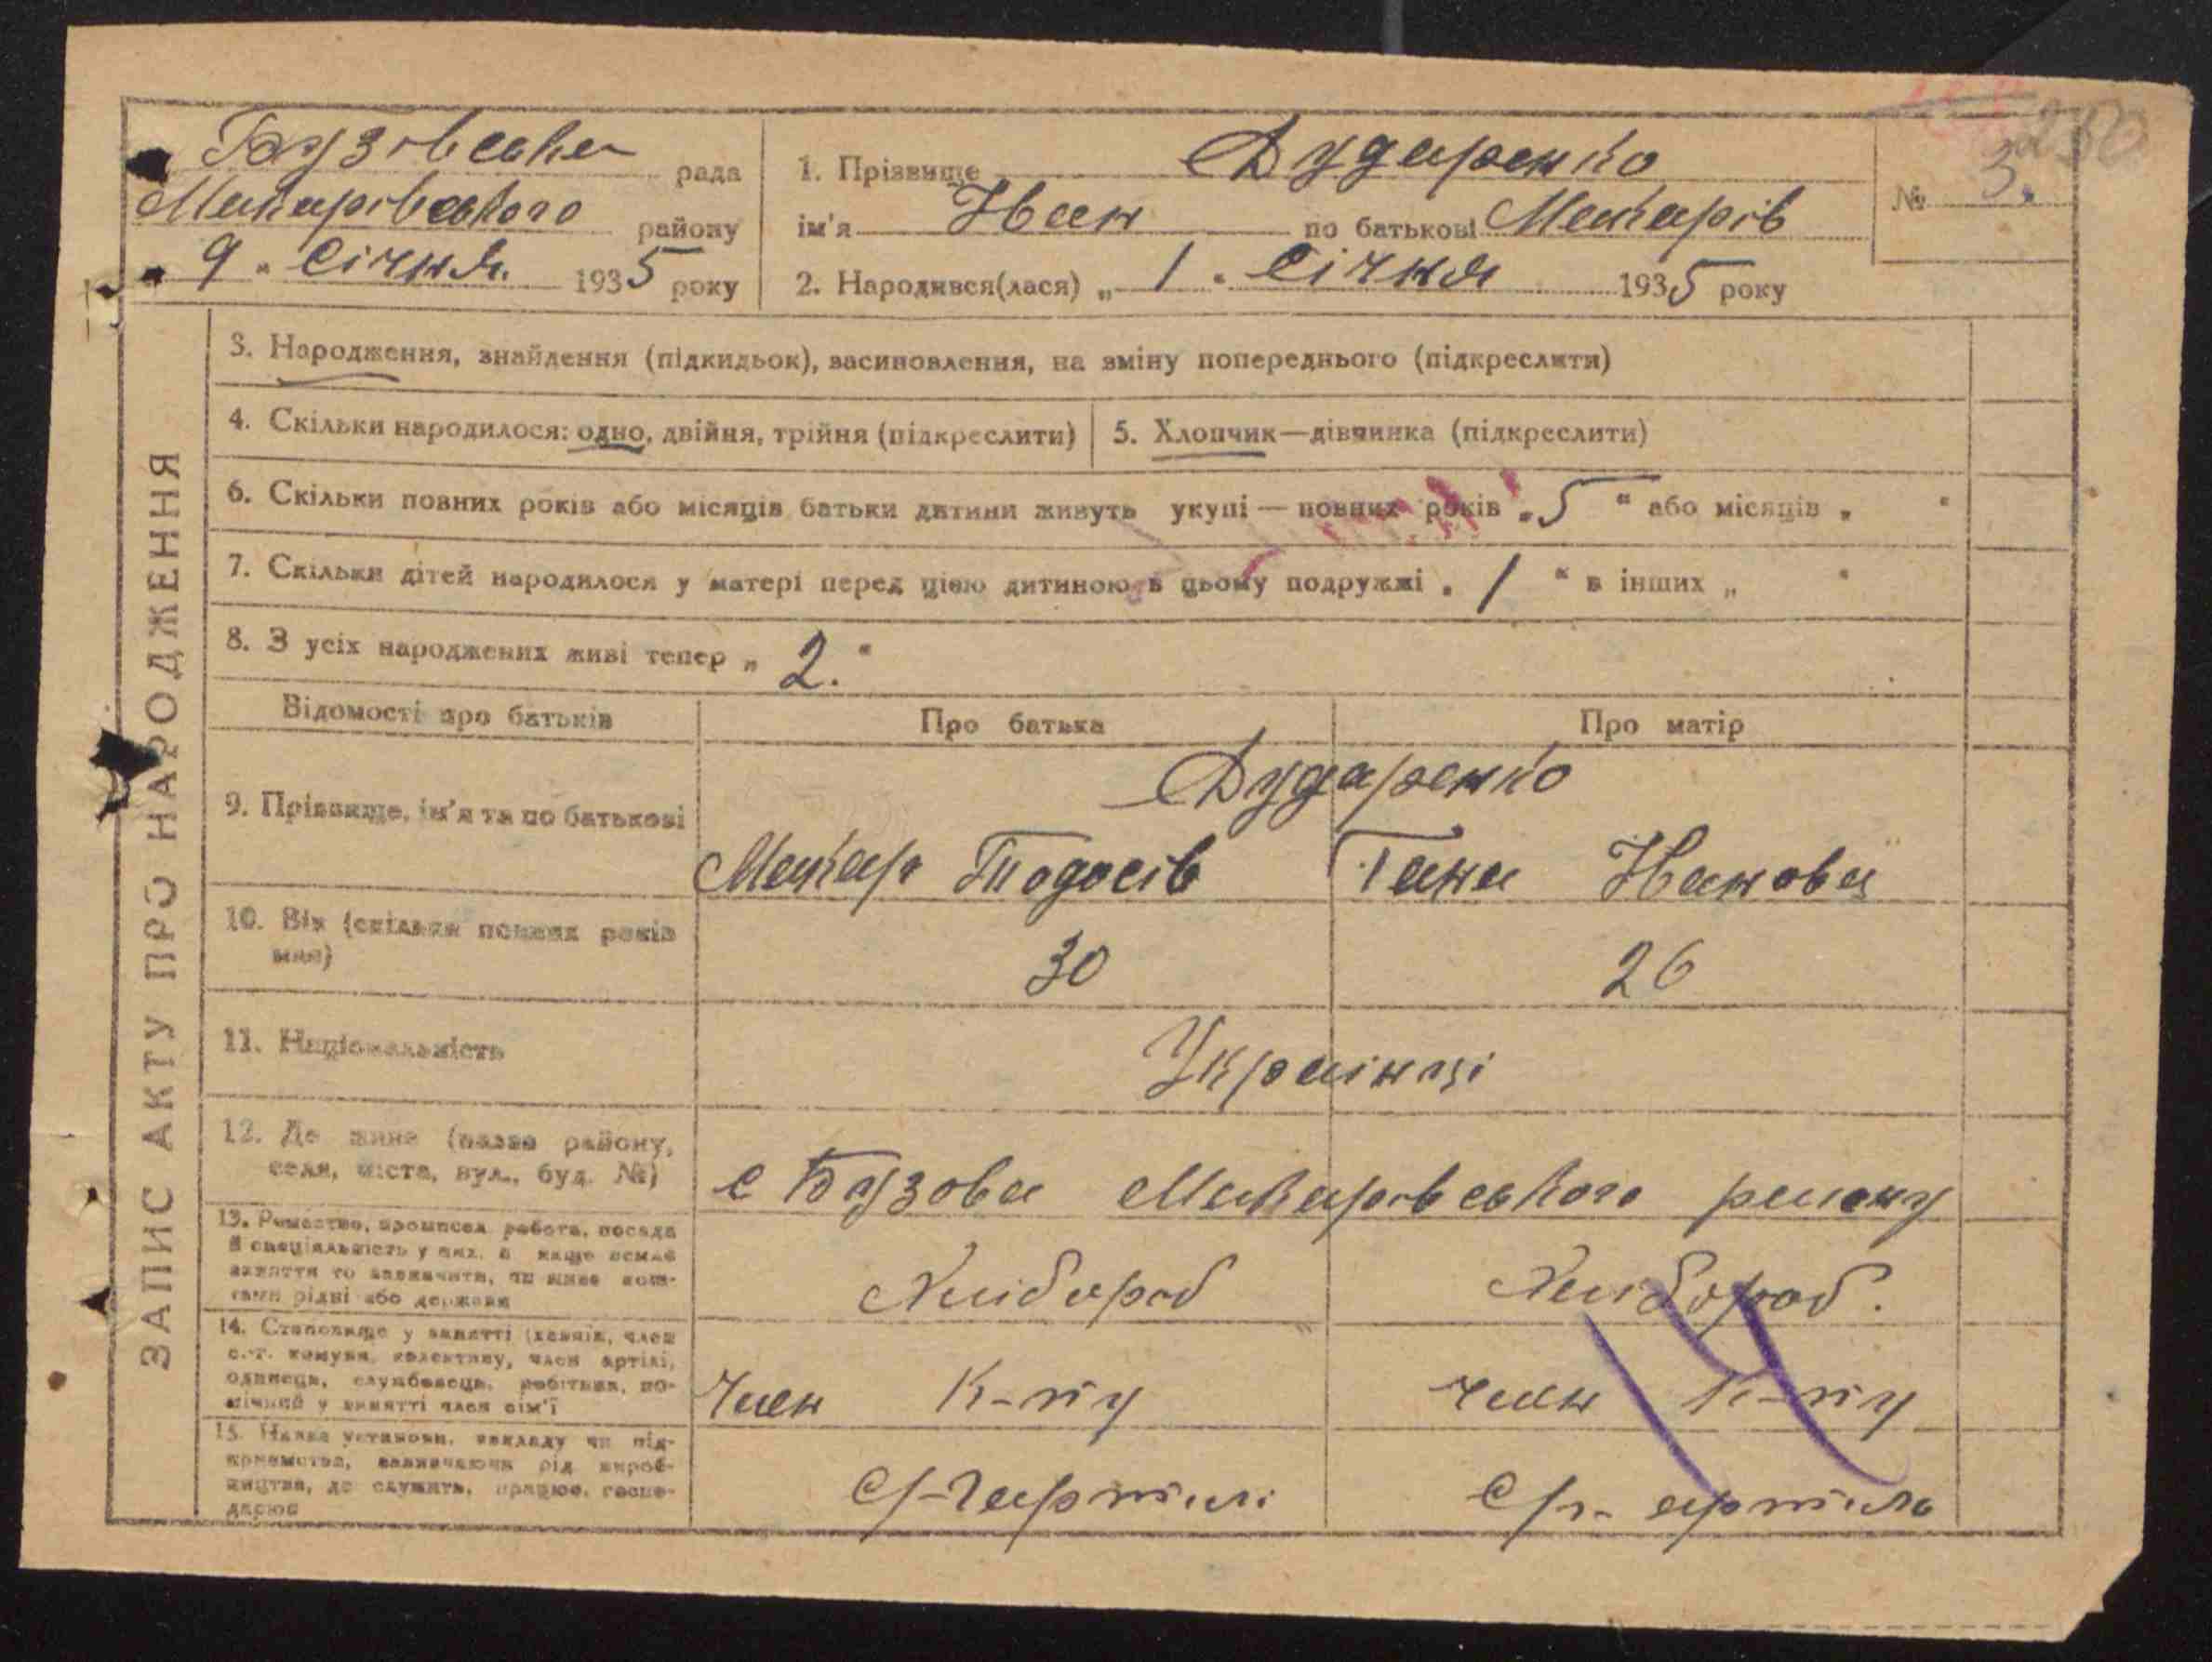 250
Бузівська рада
Макарівського району
„ 9 " Січня 1935 року
1. Прізвище Дударенко
ім'я Іван по батькові Макарів
№ 3.
2. Народився(лася) „ 1 " Січня 1935 року
ЗАПИС АКТУ ПРО НАРОДЖЕННЯ
3. Народження, знайдення (підкидьок), засиновлення, на зміну попереднього (підкреслити)
4. Скільки народилося: одно, двійня, трійня (підкреслити)
5. Хлопчик—дівчинка (підкреслити)
6. Скільки повних років або місяців батьки дитини живуть укупі — повних років „ 5 " або місяців „ "
7. Скільки дітей народилося у матері перед цією дитиною в цьому подружжі „ 1 " в інших „ "
8. З усіх народжених живі тепер „ 2. "
Відомості про батьків Про батька Про матір
Дударенко
9. Прізвище, ім'я та по батькові
Макар Тодосів Гана Іванова
10. Вік (скільки повних років має)
30 26
11. Національність
Українці
12. Де живе (назва району, села, міста, вул., буд. №)
с Бузова Макарівського району
13. Ремество, промисел, работа, посада й спеціальність у них, а якщо немає заняття то зазначити, чи живе коштами рідні або держави
Хлібороб Хлібороб.
14. Становище у занятті (хазяїн, член с.-г. комуни, колективу, член артілі, одинець, службовець, робітник, помічний у занятті член сім'ї
Член К-пу член К-пу
15. Назва установи, закладу чи підприємства, зазначаючи рід виробництва, де служить, працює, господарює